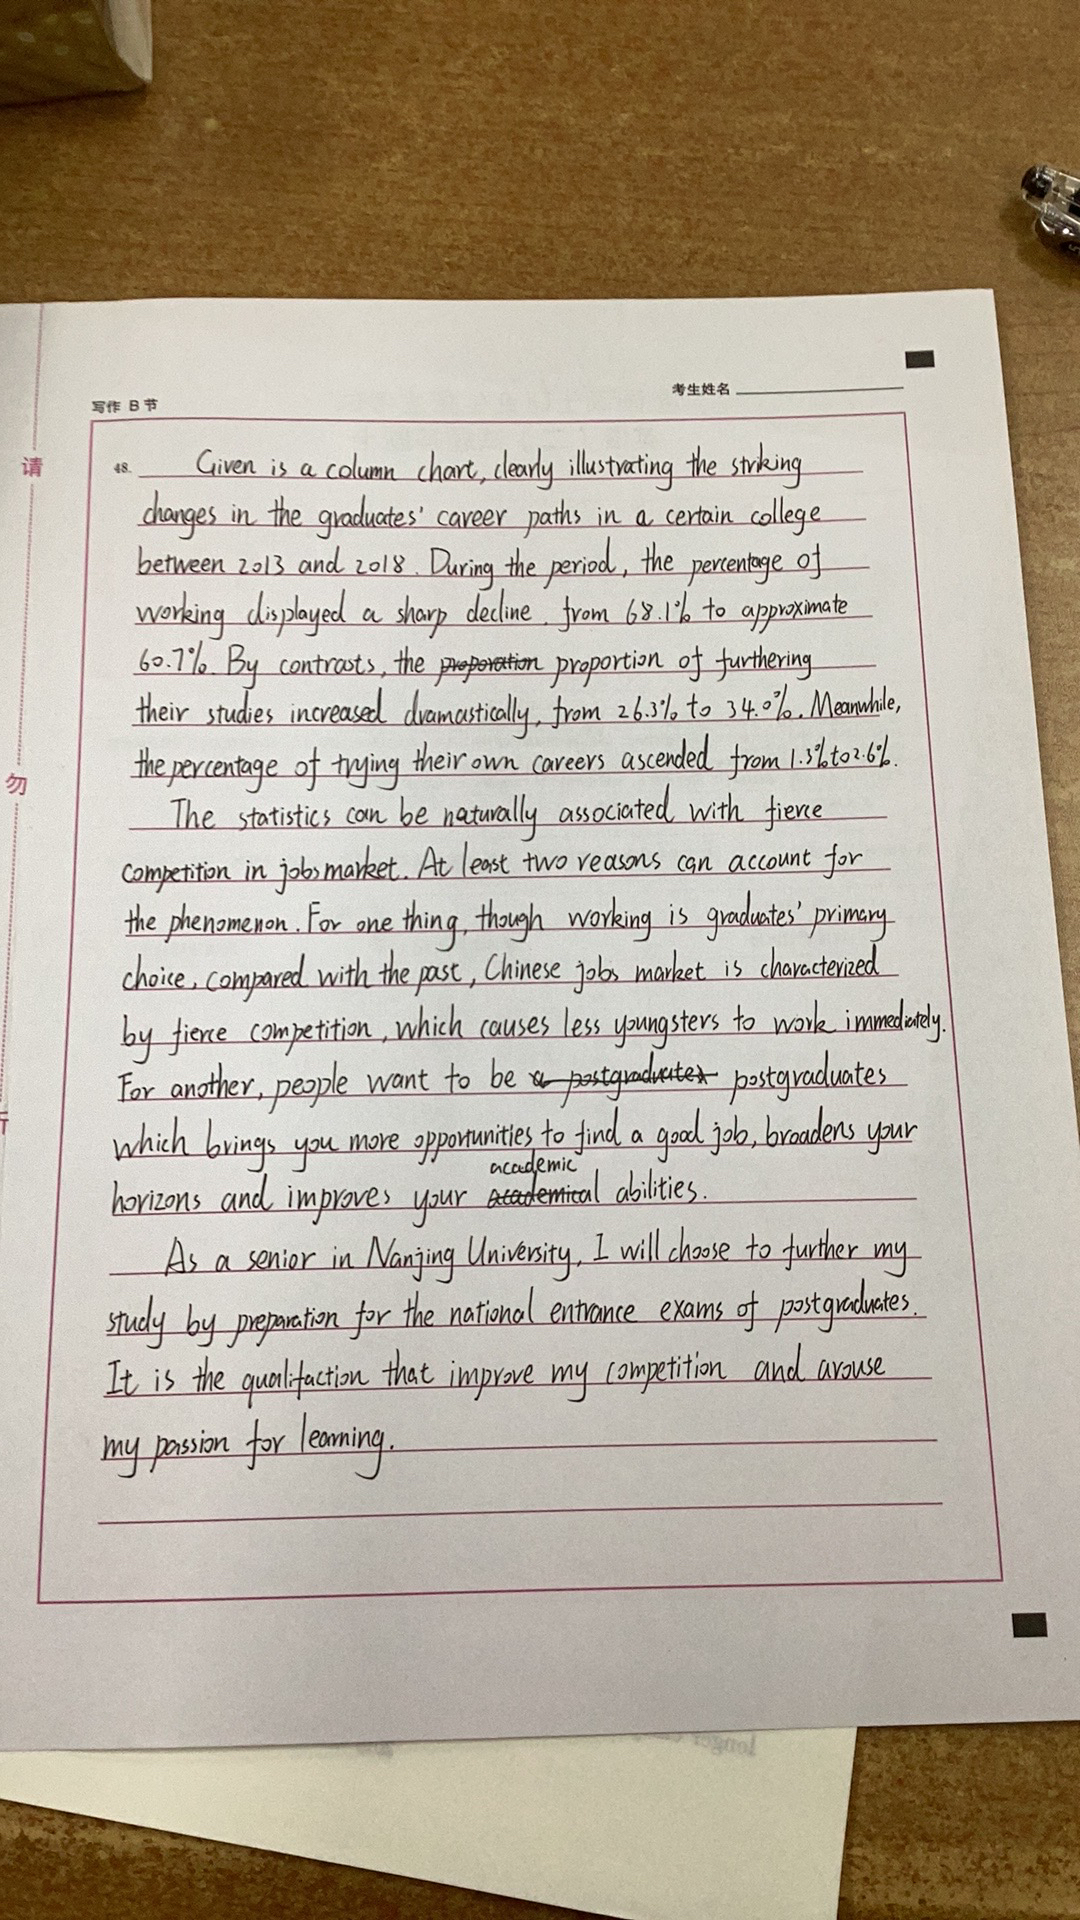 写作 B 节
考生姓名
请
勿
48. Given is a column chart, clearly illustrating the striking
changes in the graduates' career paths in a certain college
between 2013 and 2018. During the period, the percentage of
working displayed a sharp decline, from 68.1% to approximate
60.7%. By contrasts, the proporation proportion of furthering
their studies increased dramastically, from 26.3% to 34.0%. Meanwhile,
the percentage of trying their own careers ascended from 1.3% to 2.6%.
The statistics can be naturally associated with fierce
competition in jobs market. At least two reasons can account for
the phenomenon. For one thing, though working is graduates' primary
choice, compared with the past, Chinese jobs market is characterized
by fierce competition, which causes less youngsters to work immediately.
For another, people want to be a postgraduates postgraduates
which brings you more opportunities to find a good job, broadens your
academic
horizons and improves your academical abilities.
As a senior in Nanjing University, I will choose to further my
study by preparation for the national entrance exams of postgraduates.
It is the qualifaction that improve my competition and arouse
my passion for learning.
longer